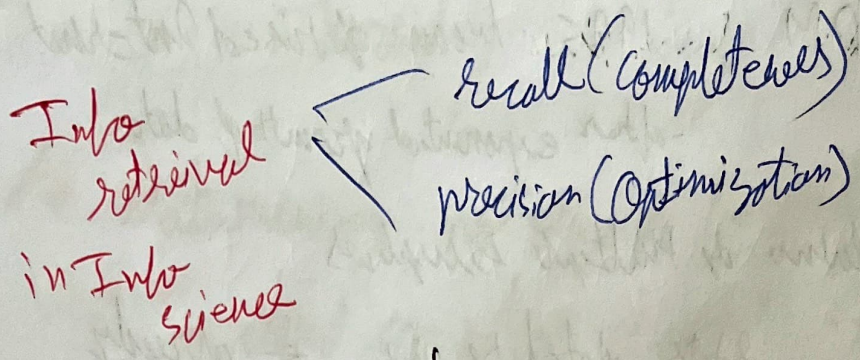 Info
retreival
in Info
science
recall (completenes)
precision (Optimization)